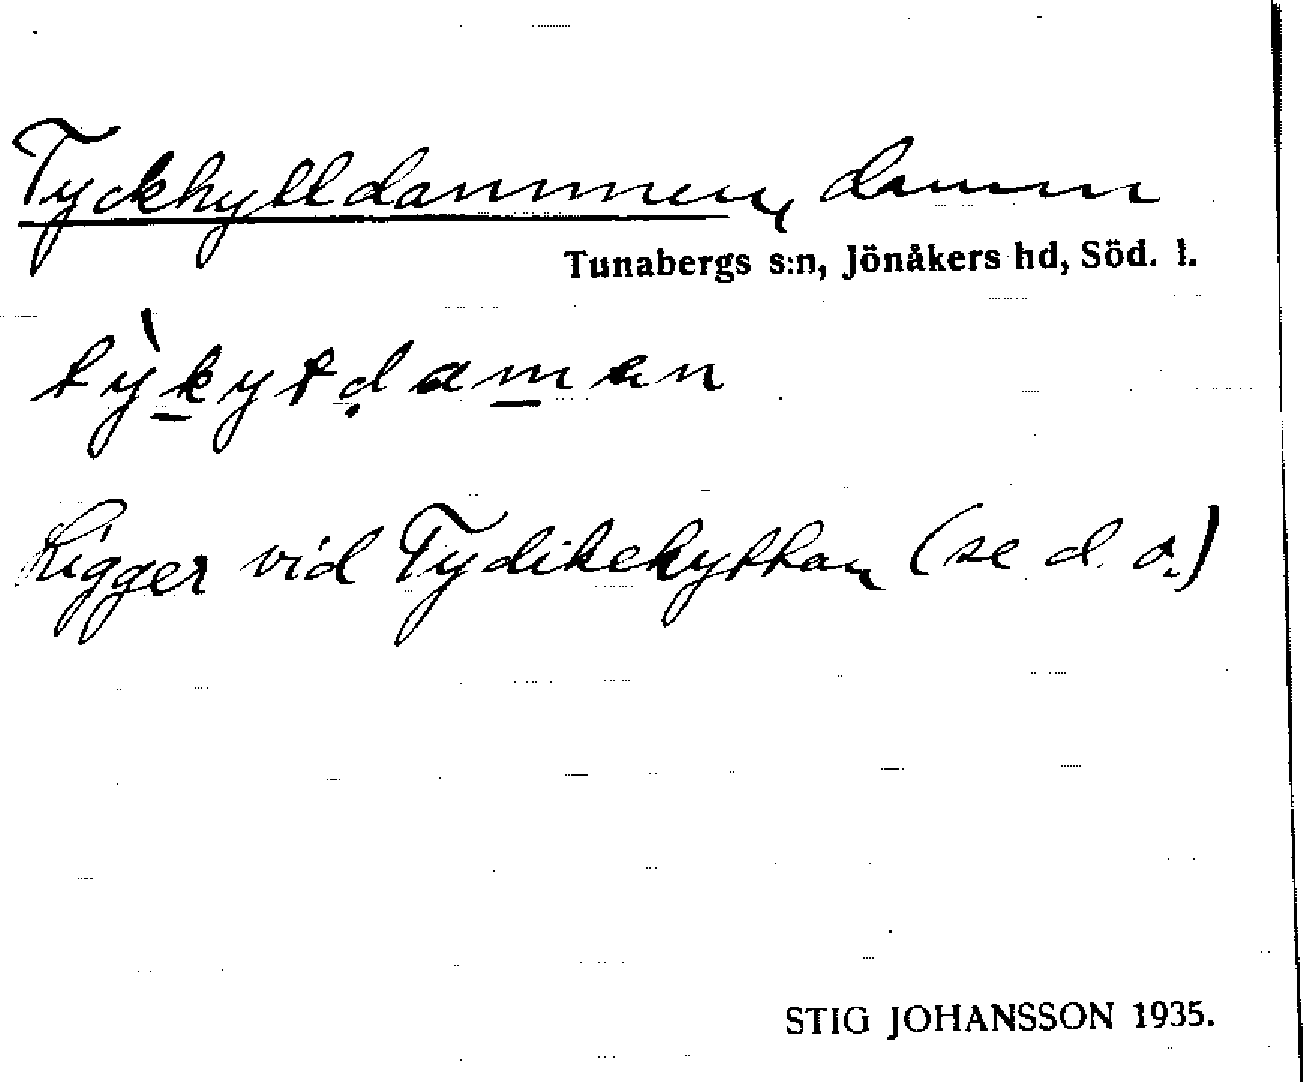 Tyckhylldammen, damm
Tunabergs s:n, Jönåkers hd, Söd. l.
Ligger vid Tydikehyttan (se d. o.)
STIG JOHANSSON 1935.